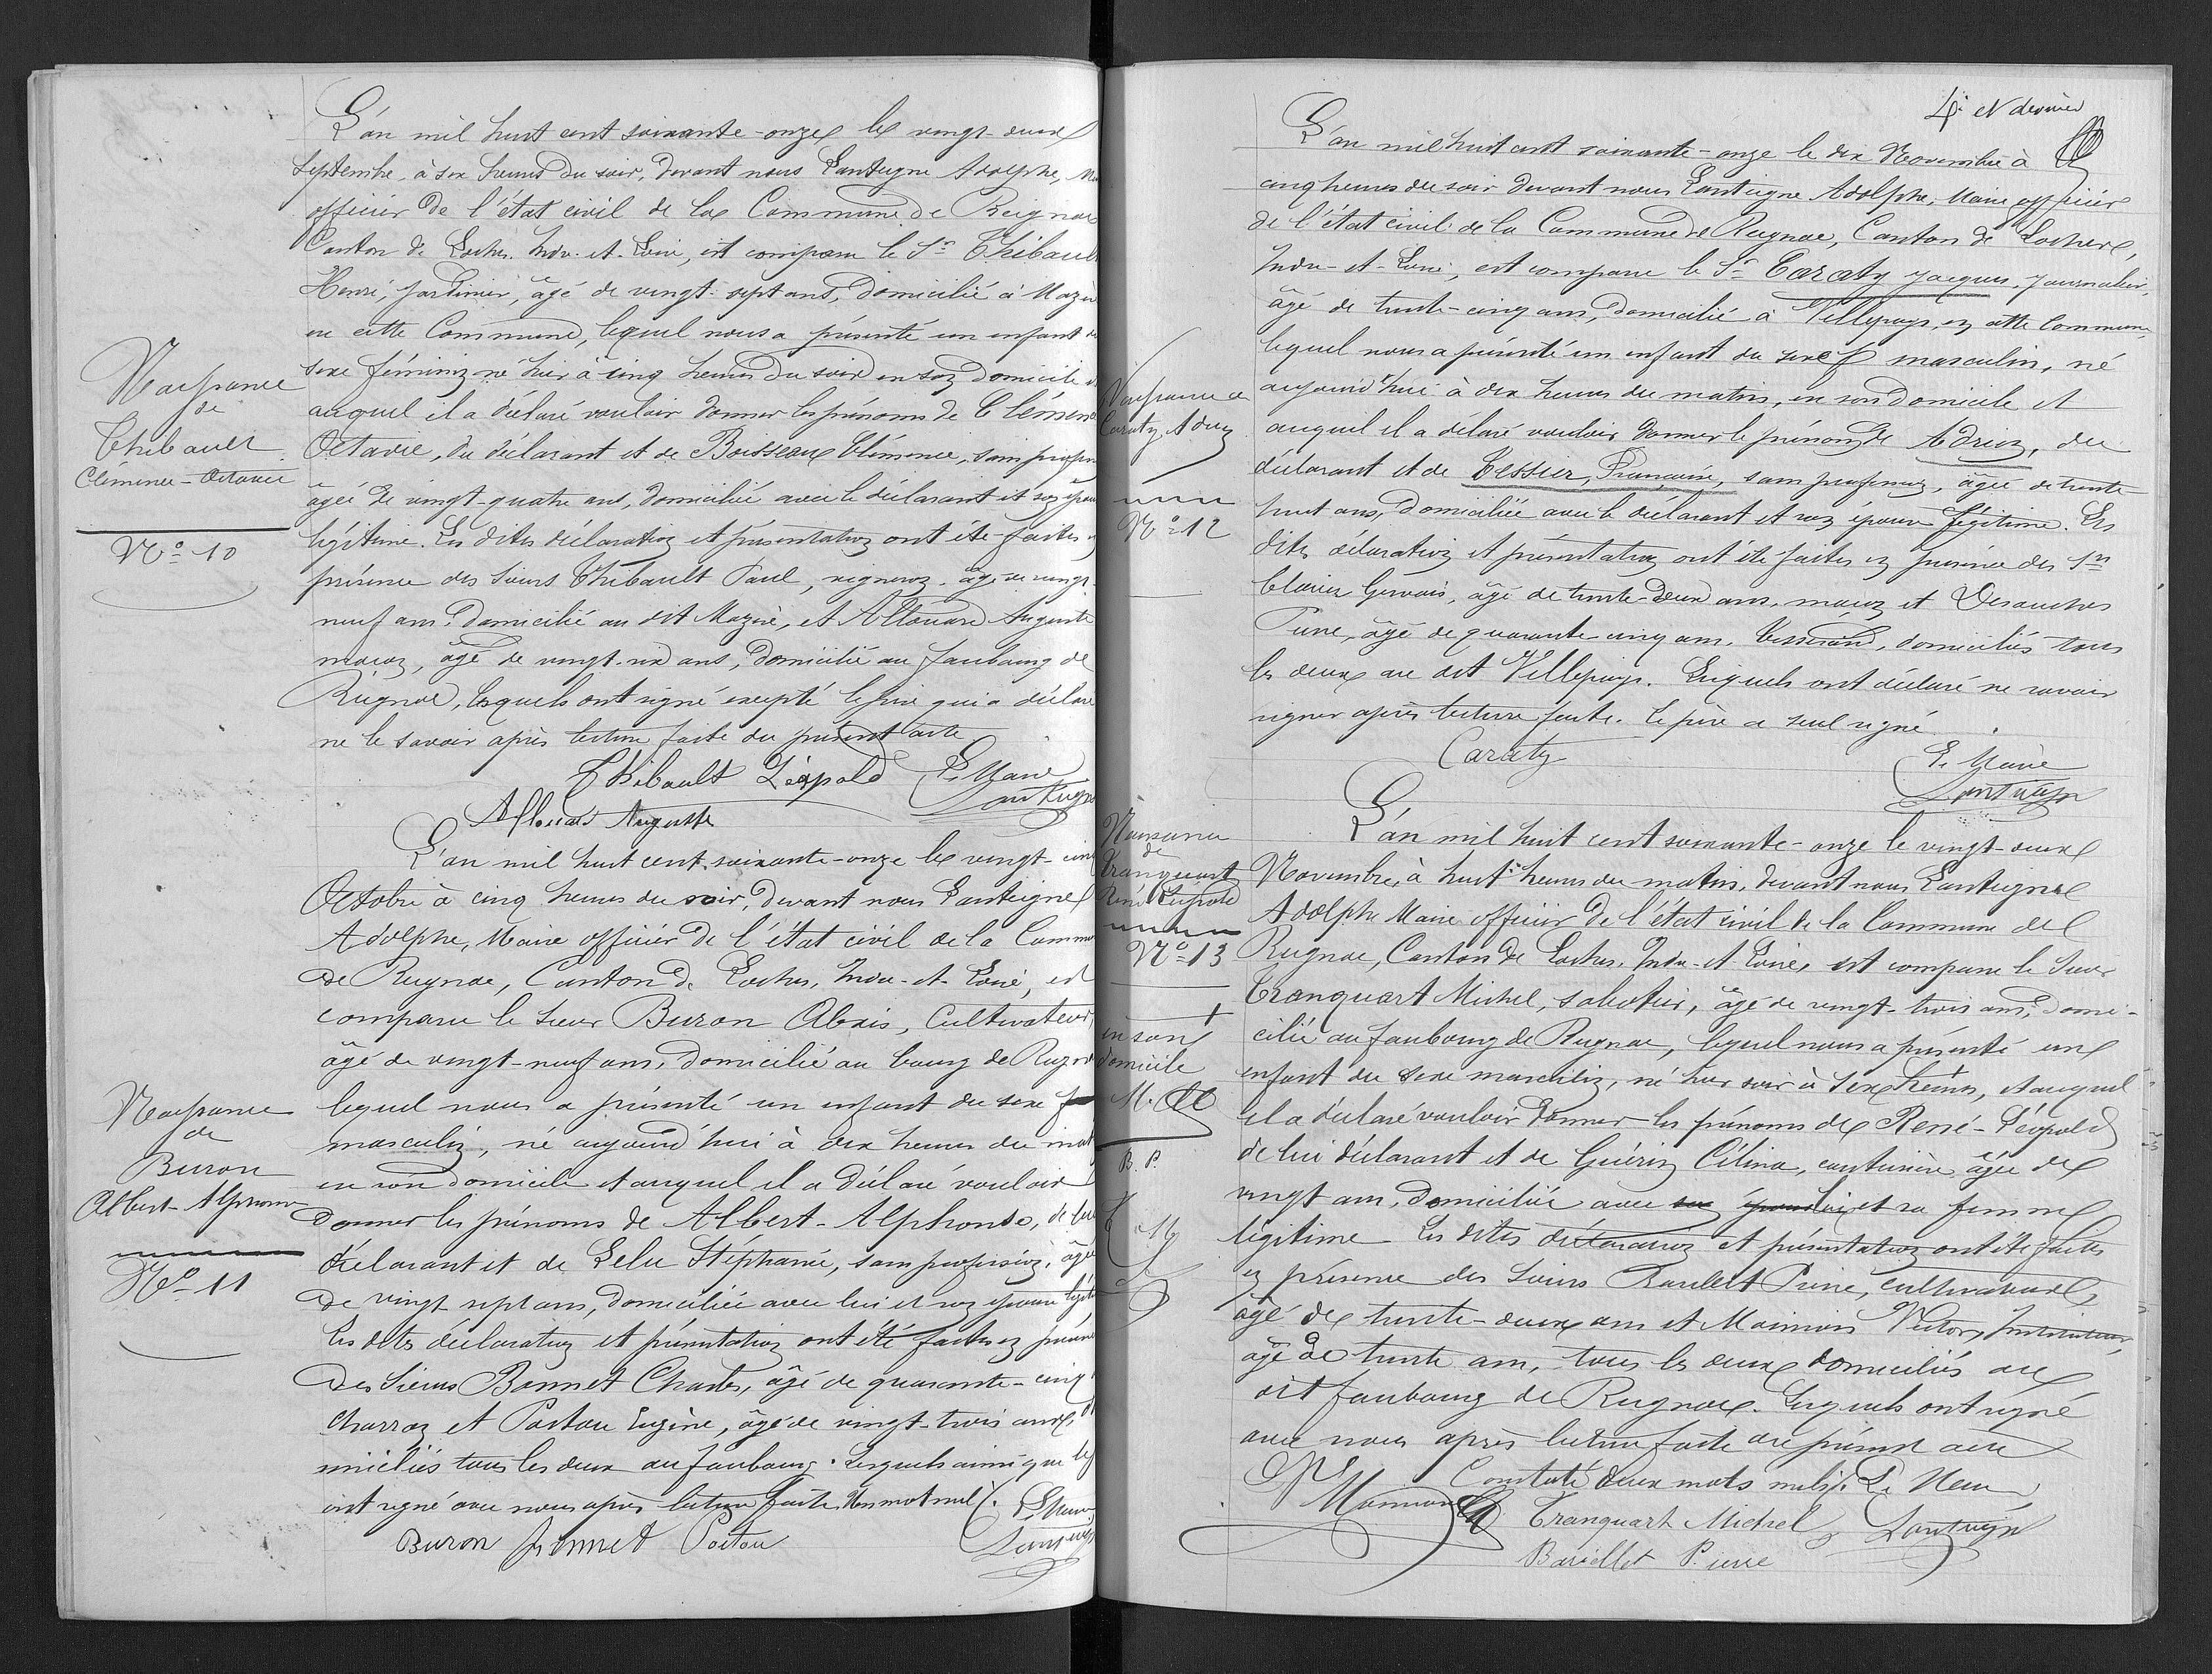 L'an mil huit cent soixante-onze le vingt-deux
Septembre, à six heures du soir, devant nous Lanteigne Adolphe,
officier de l'état civil de la Commune de Reignac
Canton de Loches. Indre-et-Loire, est comparu le Sr Thibault
Henri, jardinier, âgé de vingt-sept ans, domicilié à
en cette Commune, lequel nous a présenté un enfant du
sexe féminin né hier à cinq heures du soir en son domicile
auquel il a déclaré vouloir donner les prénoms de Clémence
Octavie, du déclarant et de Boisseau Clémence, sans
âgée de vingt-quatre ans, domiciliée avec le déclarant et son
légitime. Les dites déclaration et présentation ont été faites
présence des Sieurs Thibault Paul, vigneron, âgé de vingt-
neuf ans, domicilié au dit Mazère, et Allouard Auguste
maçon, âgé de vingt-six ans, domicilié au faubourg de
Reignac, lesquels ont signé excepté le père qui a déclaré
ne le savoir après lecture faite du présent acte
Thibault Léopold Le Maire
Allouard Auguste Lanteigne
Naissance
de
Thibault
Clémence-Octavie
No 10
L'an mil huit cent soixante-onze le vingt-cinq
Octobre à cinq heures du soir, devant nous Lanteigne
Adolphe, Maire officier de l'état civil de la Commune
de Reignac, Canton de Loches, Indre-et-Loire, est
comparu le Sieur Buron Alexis, Cultivateur,
âgé de vingt-neuf ans, domicilié au bourg de Reignac
lequel nous a présenté un enfant du sexe
masculin, né aujourd'hui à dix heures du
en son domicile et auquel il a déclaré vouloir
donner les prénoms de Albert-Alphonse, de lui
déclarant et de Lelu Stéphanie, sans profession, âgée
de vingt sept ans, domiciliée avec lui et son épouse
Les dites déclaration et présentation ont été faites en
des Sieurs Bonnet Charles, âgé de quarante-cinq
charron et Poitou Eugène, âgé de vingt-trois ans,
miciliés tous les deux au faubourg. Lesquels ainsi que le
ont signé avec nous après lecture faite. Un mot nul. Le Maire
Buron Bonnet Poitou Lanteigne
Naissance
de
Buron
Albert-Alphonse
No 11
4e et dernier
L'an mil huit cent soixante-onze le dix Novembre à
cinq heures du soir devant nous Lanteigne Adolphe, Maire officier
de l'état civil de la Commune de Reignac, Canton de Loches,
Indre-et-Loire, est comparu le Sr Caraty Jacques, journalier,
âgé de trente-cinq ans, domicilié à Villepays, en cette Commune,
lequel nous a présenté un enfant du sexe masculin, né
aujourd'hui à dix heures du matin, en son domicile et
auquel il a déclaré vouloir donner le prénom de Adrien, du
déclarant et de Tessier, Françoise, sans profession, âgée de trente-
huit ans, domiciliée avec le déclarant et son épouse légitime. Les
dites déclaration et présentation ont été faites en présence des Srs
Clavier Gervais, âgé de trente-deux ans, maçon et Desouches
âgé de quarante-cinq ans, tisserand, domiciliés tous
les deux au dit Villepays. Lesquels ont déclaré ne savoir
signer après lecture faite. Le père a seul signé.
Caraty Le Maire
Lanteigne
Naissance de
Caraty Adrien
No 12
L'an mil huit cent soixante-onze le vingt-deux
Novembre, à huit heures du matin, devant nous Lanteigne
Adolphe Maire officier de l'état civil de la Commune de
Reignac, Canton de Loches, Indre-et-Loire, est comparu le Sieur
Tranquart Michel, sabotier, âgé de vingt-trois ans, domi-
cilié au faubourg de Reignac, lequel nous a présenté un
enfant du sexe masculin, né hier soir à six heures, et auquel
il a déclaré vouloir donner les prénoms de René-Léopold
de lui déclarant et de Guérin Célina, couturière âgée de
vingt ans, domiciliée avec son époux lui et sa femme
légitime. Les dites déclaration et présentation ont été faites
en présence des Sieurs Barillet Pierre, cultivateur,
âgé de trente-deux ans et Moinian Victor, Instituteur,
âgé de trente ans, tous les deux domiciliés au
dit faubourg de Reignac. Lesquels ont signé
avec nous après lecture faite du présent acte
Constaté deux mots nuls. Le Maire
Tranquart Michel Lanteigne
Barillet Pierre
Naissance
de
Tranquart
René Léopold
No 13
en son
domicile
M.
B. P.